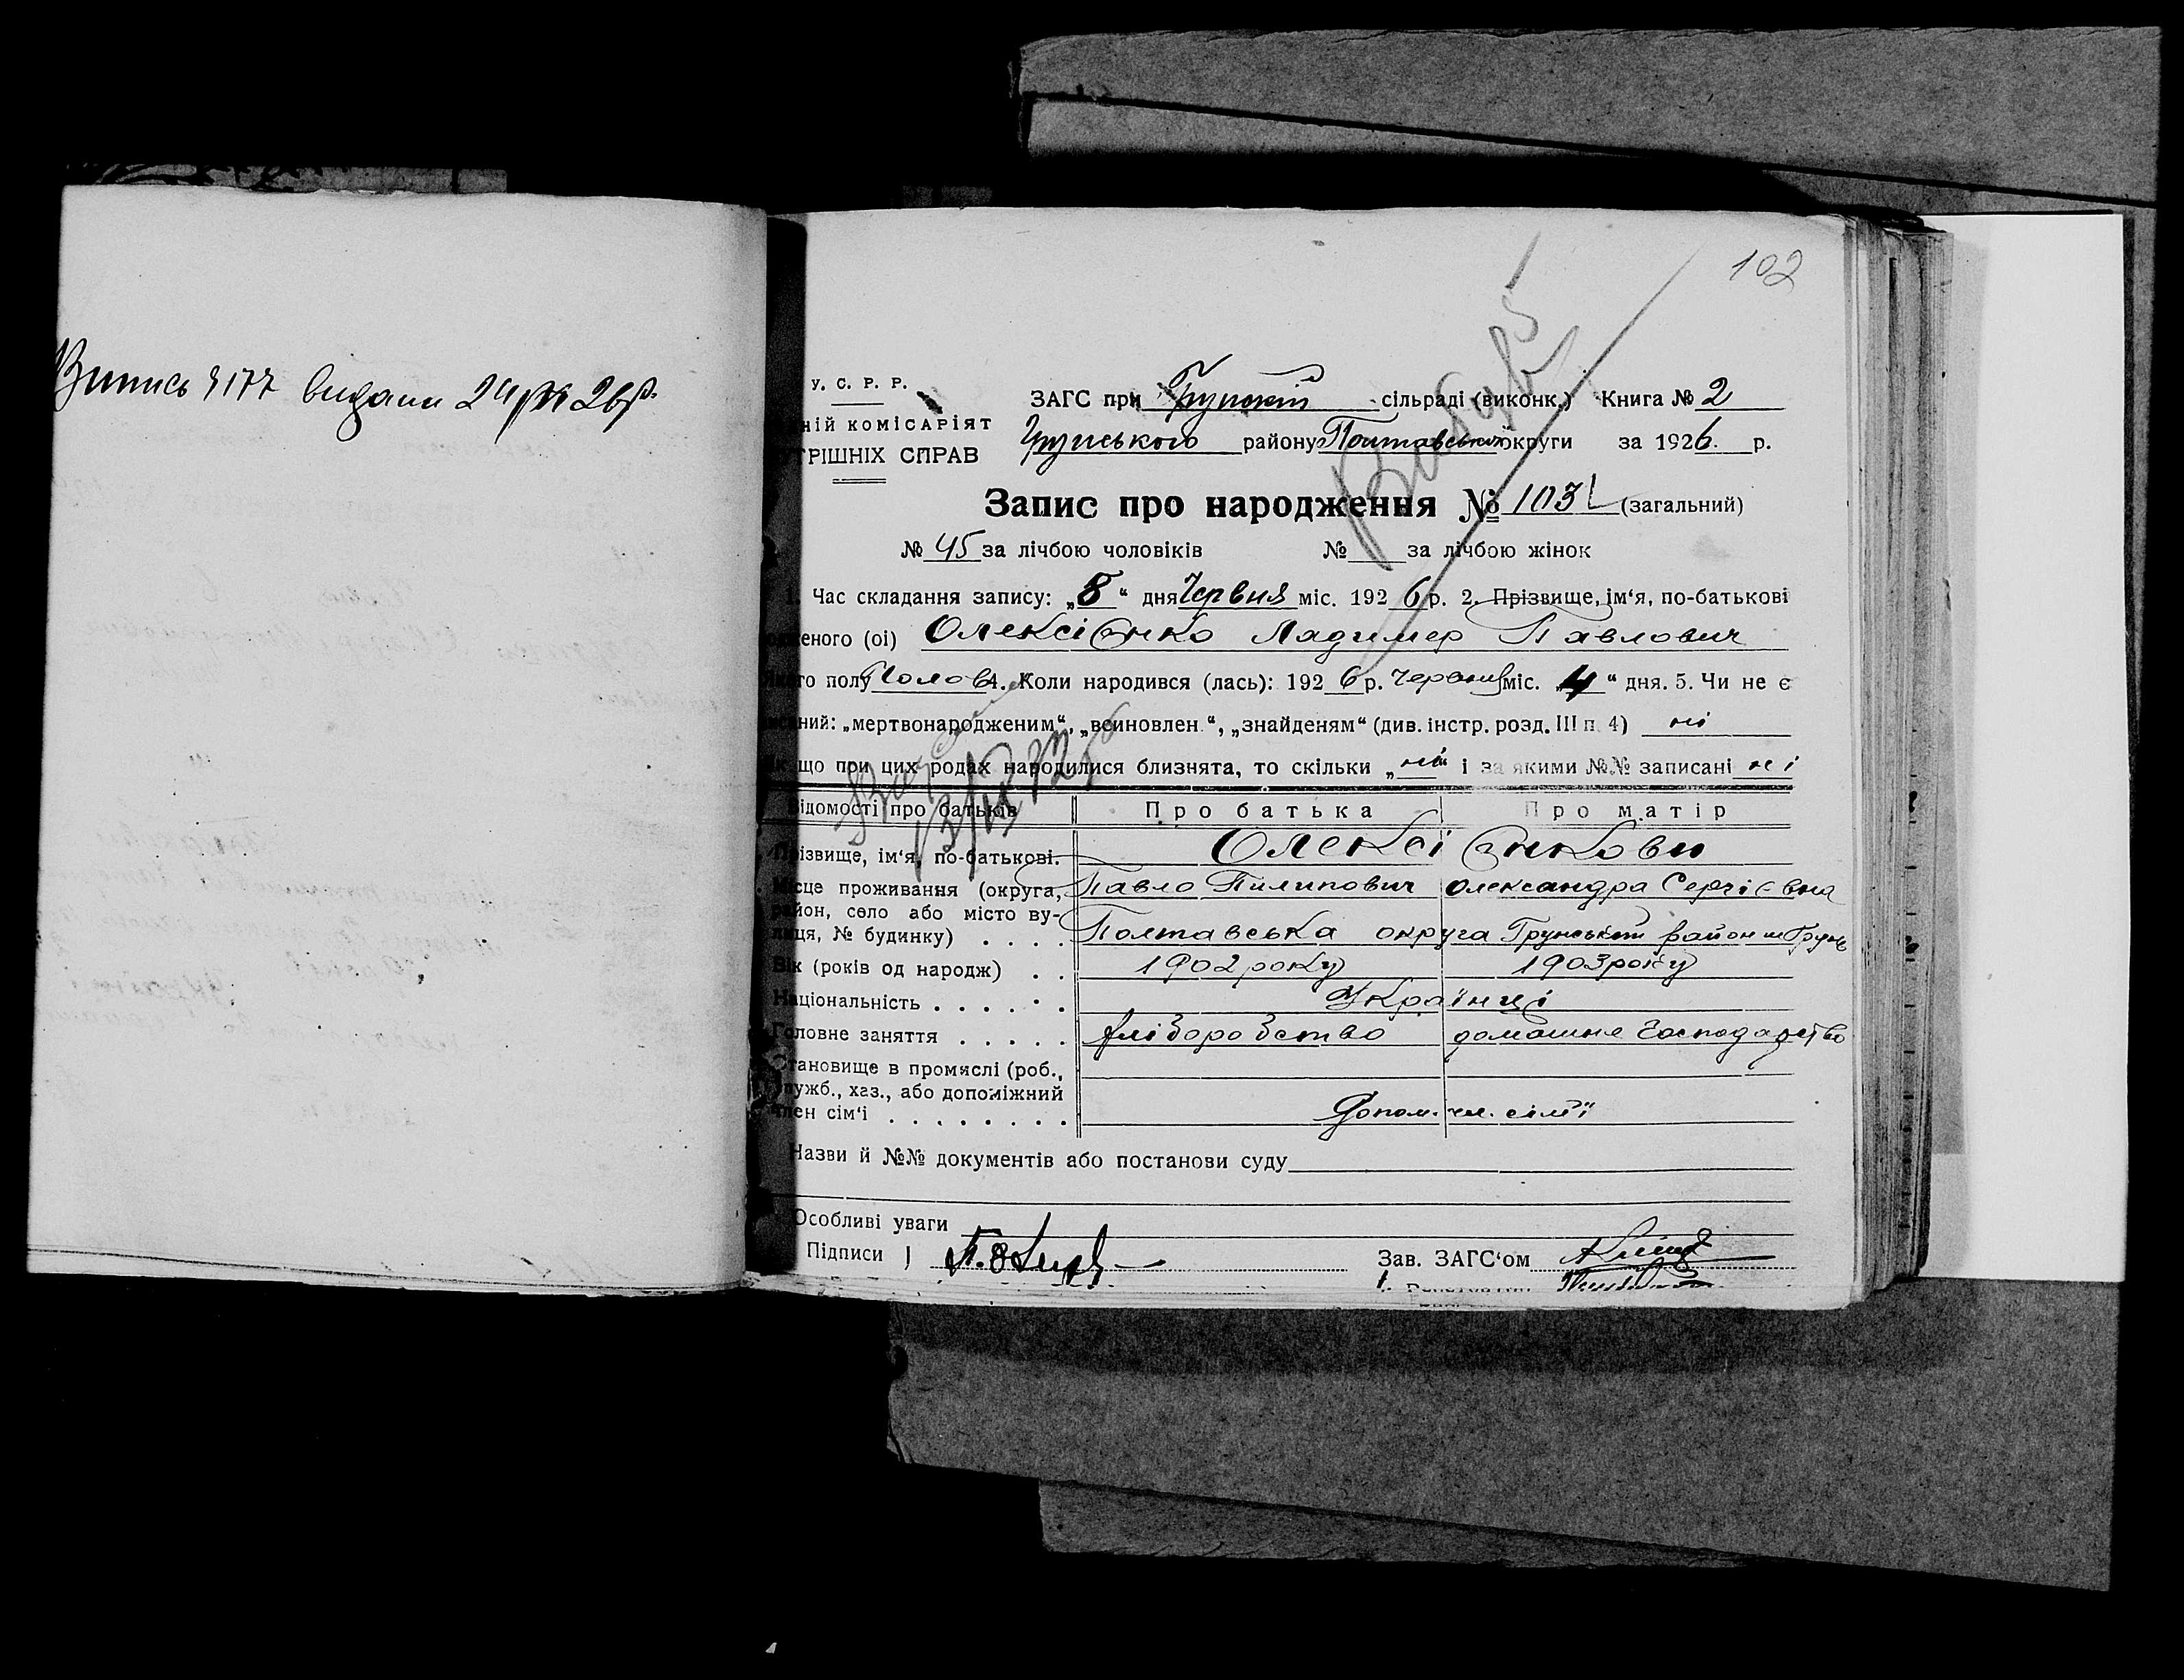 Випись №177 видана 24/XI 26 р.
102
У. С. Р. Р.
ній комісаріят
трішніх справ
ЗАГС при Грунській сільраді (виконк.) Книга № 2
Грунського району Полтавської округи за 1926 р.
Запис про народження № 103 (загальний)
№ 45 за лічбою чоловіків № за лічбою жінок
1. Час складання запису: „8“ дня Червня міс. 1926 р. 2. Прізвище, ім‘я, по-батькові
женого (ої) Олексієнко Ладимер Павлович
го полу Чолов 4. Коли народився (лась): 1926 р. Червня міс. „4“ дня. 5. Чи не є
саний: „мертвонародженим“, „всиновлен.“, „знайденям“ (див. інстр. розд. III п. 4) ні
що при цих родах народилися близнята, то скільки „ні“ і за якими №№ записані ні
Відомості про батьків Про батька Про матір
Прізвище, ім‘я, по-батькові. Олексієнкови
Місце проживання (округа, Павло Пилипович Олександра Сергієвна
район, село або місто ву-
лиця, № будинку) . . . . Полтавська округа Грунський район м Грунь
Вік (років од народж) . . 1902 року 1903 року
Національність . . . . . Українці
Головне заняття . . . . . хліборобство домашнє господарство
Становище в промислі (роб.,
служб., хаз., або допоміжний
член сім‘ї . . . . . . . . Допом. чл. сім'ї
Назви й №№ документів або постанови суду
Особливі уваги
Підписи
Зав. ЗАГС‘ом